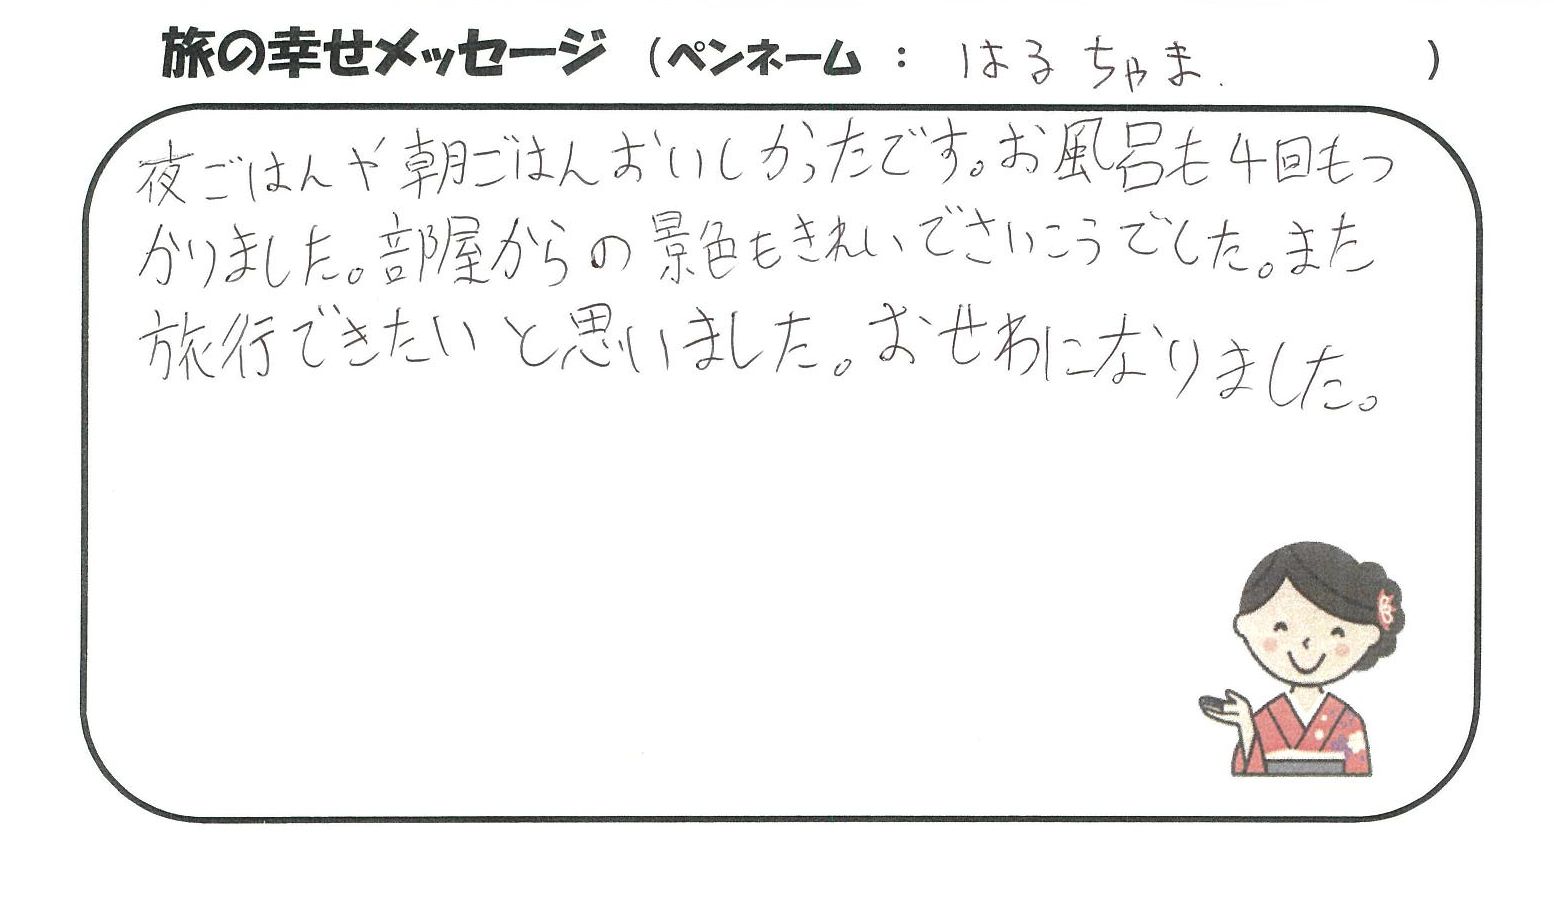 旅の幸せメッセージ (ペンネーム : はるちゃま. )
夜ごはんや朝ごはんおいしかったです。お風呂も4回もつ
かりました。部屋からの景色もきれいでさいこうでした。また
旅行できたいと思いました。おせわになりました。